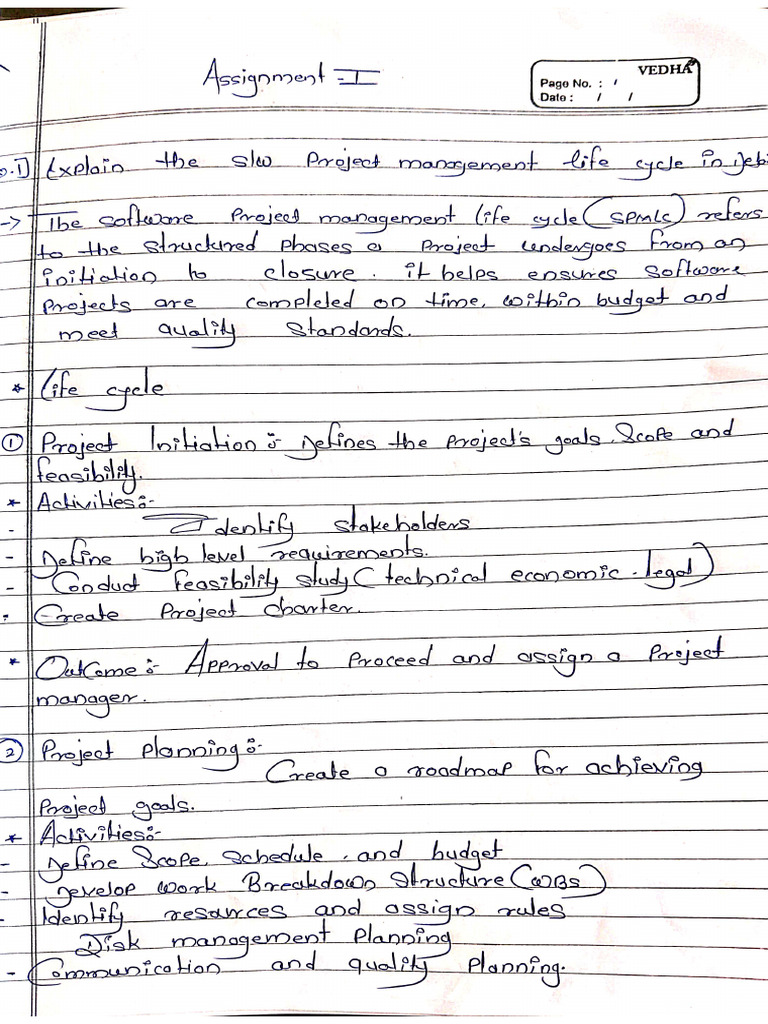 Assignment - I
VEDHA
Page No. : /
Date : / /
Q.1] Explain the s/w Project management life cycle in
-> The software Project management life cycle (SPMLC) refers
to the structured phases a Project undergoes from an
initiation to closure. it helps ensures software
Projects are completed on time, within budget and
meet quality standards.
* Life cycle
① Project Initiation :- Defines the project's goals, scope and
feasibility.
* Activities :-
- Identify stakeholders
- Define high level requirements.
- Conduct feasibility study (technical economic, legal)
- Create Project charter.
* Outcome :- Approval to proceed and assign a Project
manager.
② Project planning :-
Create a roadmap for achieving
Project goals.
* Activities :-
- Define scope, schedule, and budget
- Develop work Breakdown Structure (WBS)
- Identify resources and assign rules
Disk management planning
- Communication and quality planning.